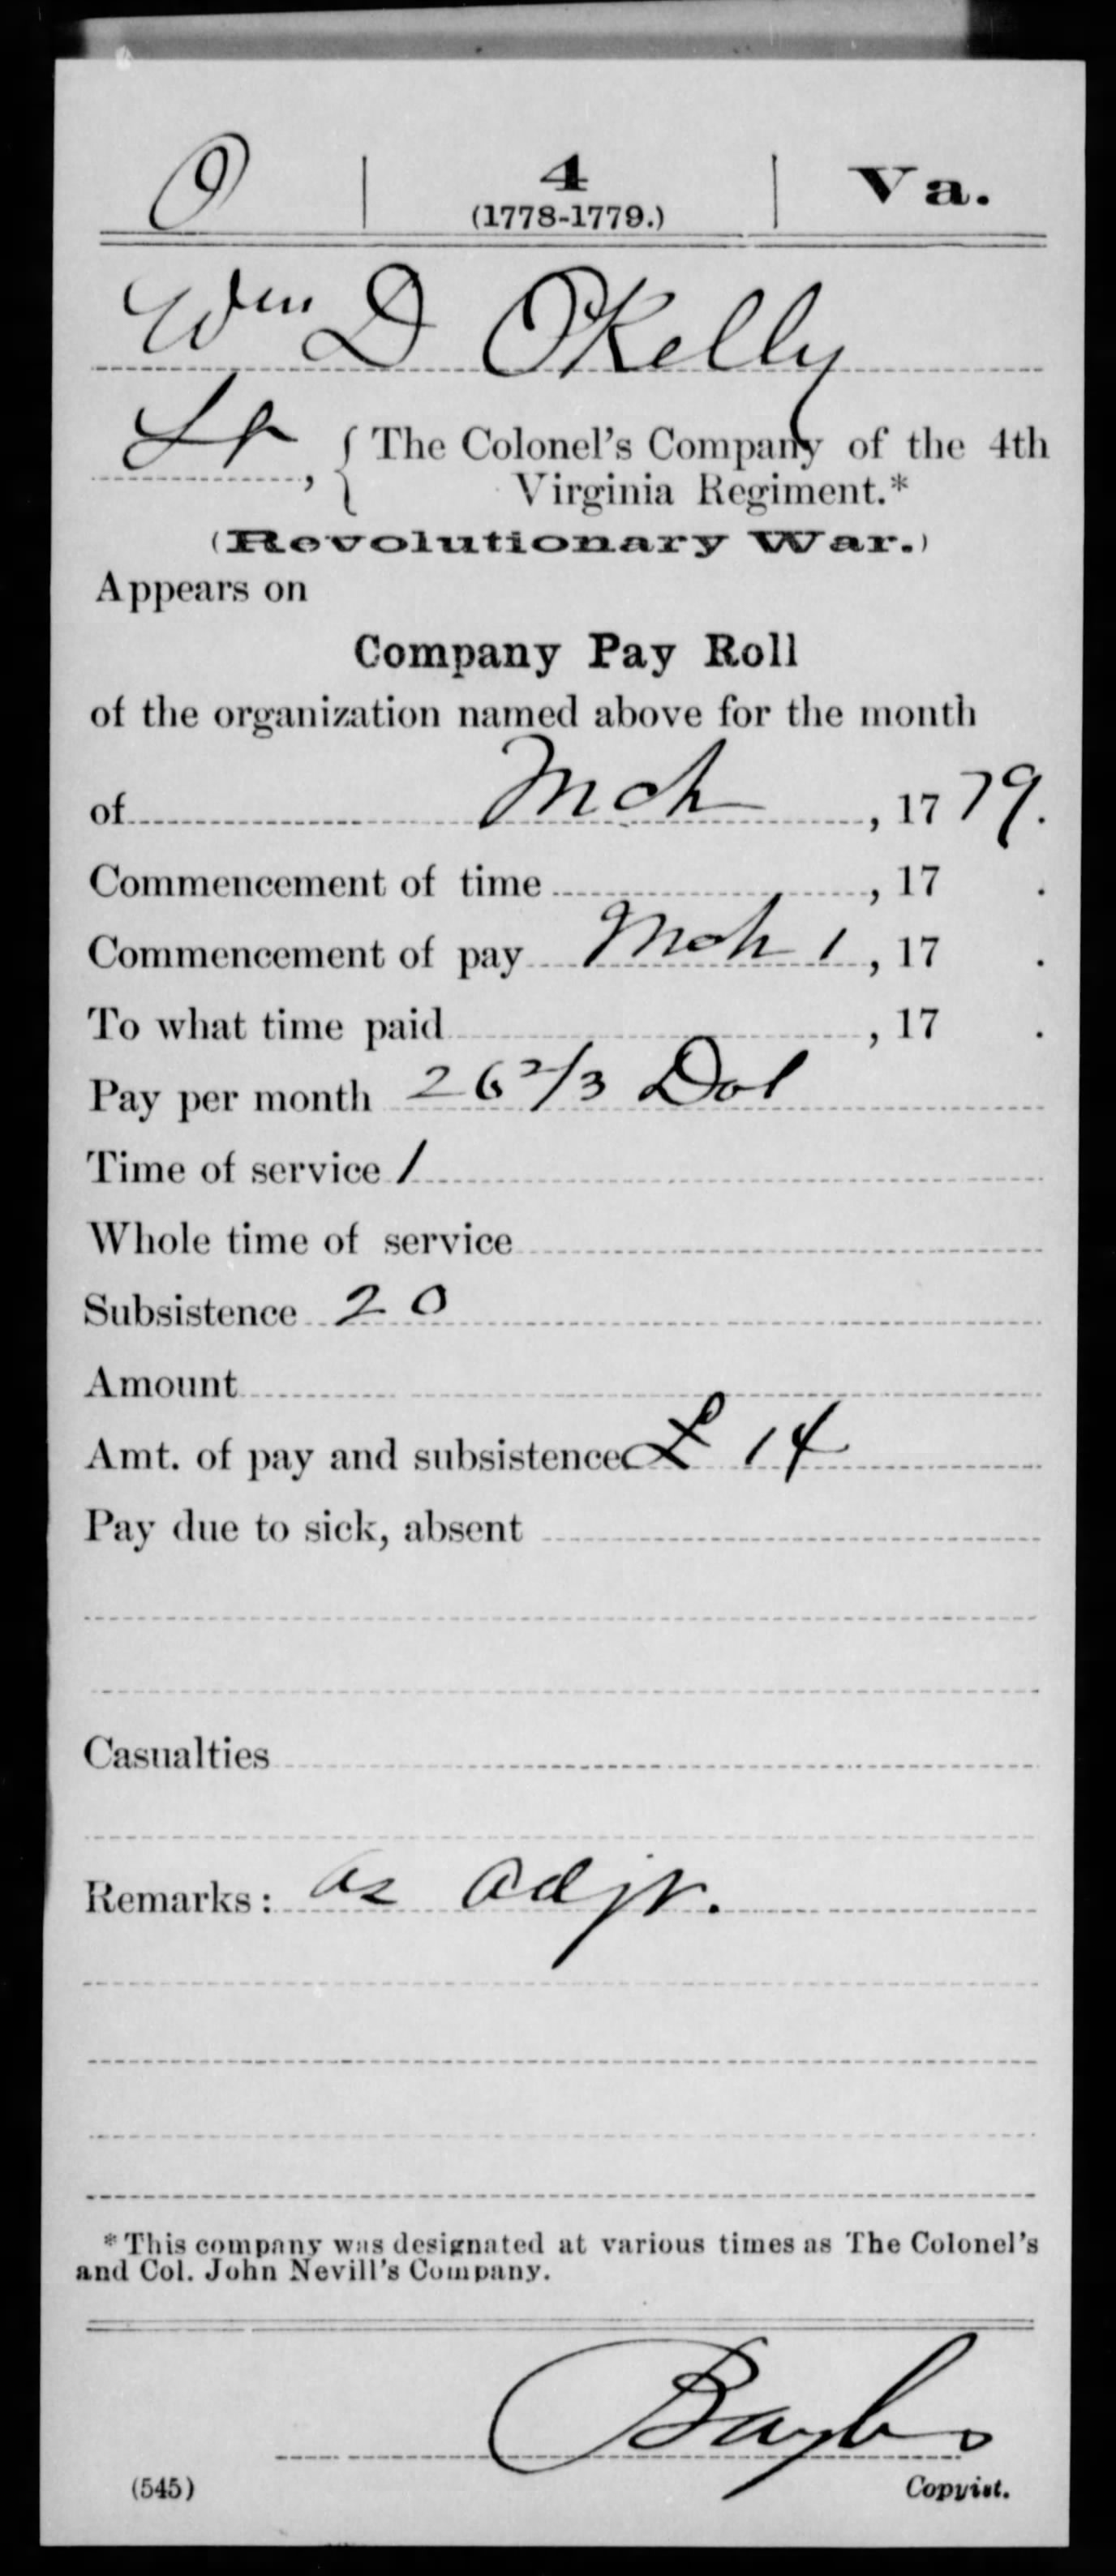 O | 4 | Va.
(1778-1779.)
Wm D O'Kelly
Lt, { The Colonel's Company of the 4th
Virginia Regiment.*
(Revolutionary War.)
Appears on
Company Pay Roll
of the organization named above for the month
of Mch, 1779.
Commencement of time, 17 .
Commencement of pay Mch 1, 17 .
To what time paid, 17 .
Pay per month 26 2/3 Dol
Time of service 1
Whole time of service
Subsistence 20
Amount
Amt. of pay and subsistence £ 14
Pay due to sick, absent
Casualties
Remarks: as adjt.
*This company was designated at various times as The Colonel's
and Col. John Nevill's Company.
(545)
Copyist.